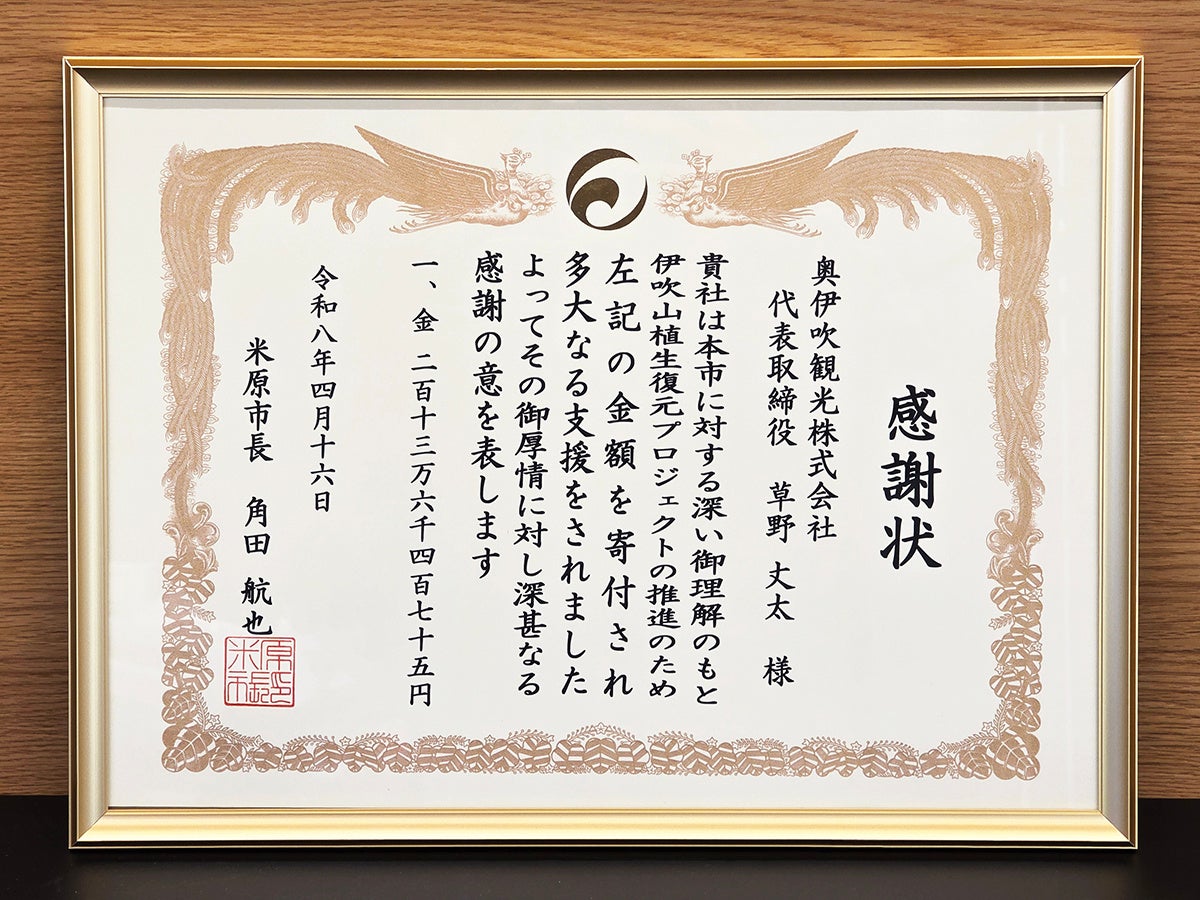 感謝状
奥伊吹観光株式会社
代表取締役 草野 丈太 様
貴社は本市に対する深い御理解のもと
伊吹山植生復元プロジェクトの推進のため
左記の金額を寄付され
多大なる支援をされました
よってその御厚情に対し深甚なる
感謝の意を表します
一、金 二百十三万六千四百七十五円
令和八年四月十六日
米原市長 角田 航也
米原市長印